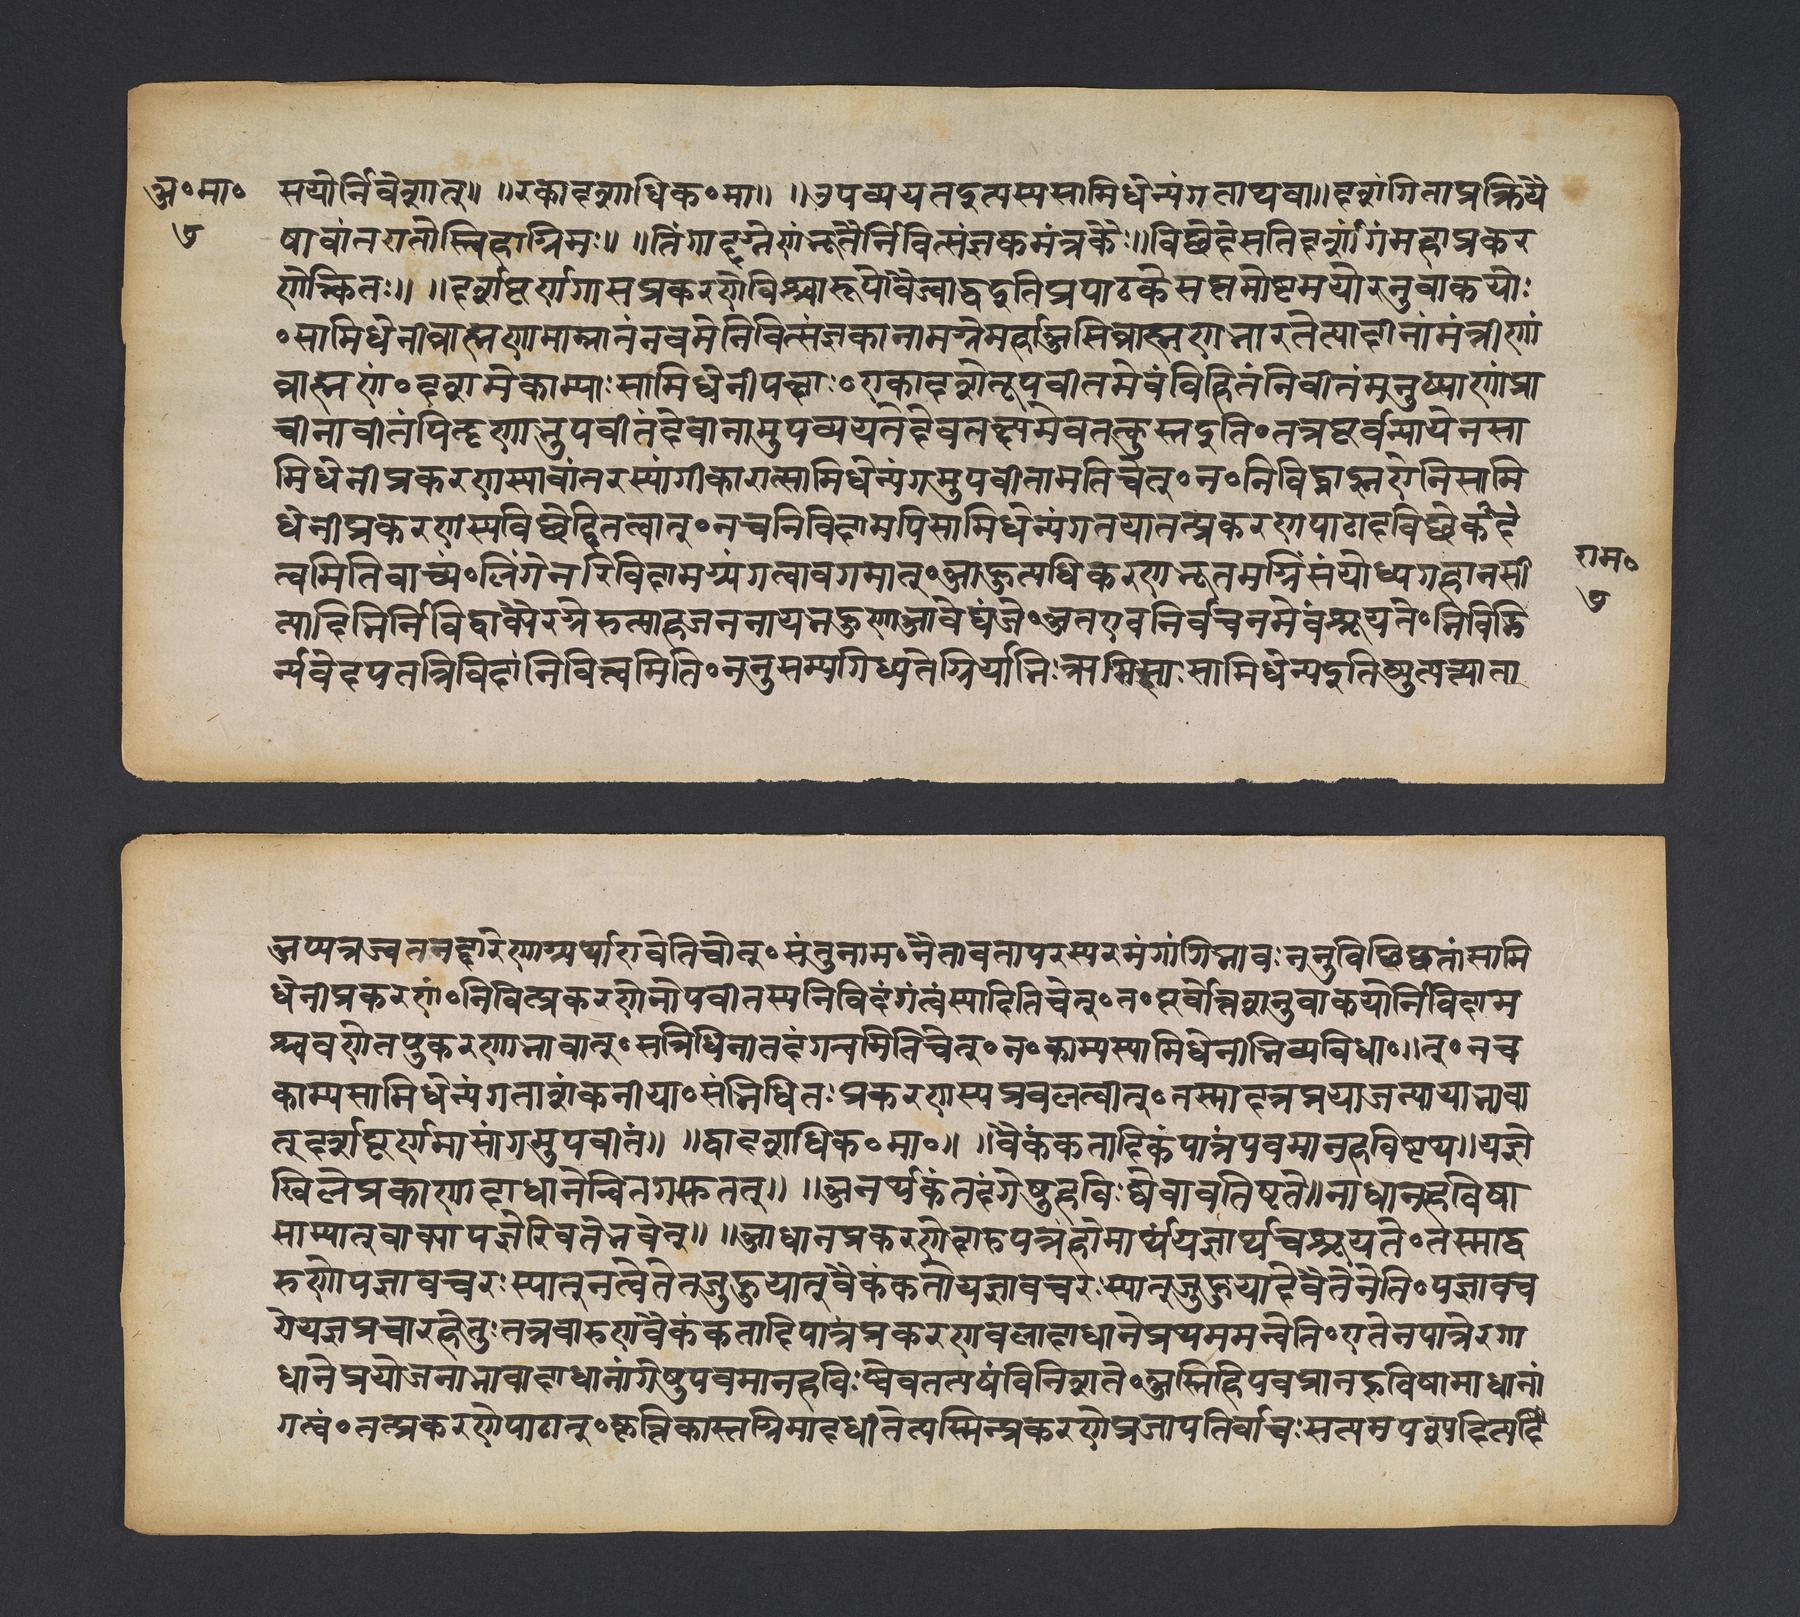 अ॰मा॰
७
सयोर्निवेशात्॥ ॥एकादशाधिक॰मा॥ ॥उपव्ययतइत्यस्यसामिधेन्यंगताथवा॥दर्शांगिताप्रक्रियै
षावांतरातोस्त्विहाग्रिमः॥ ॥लिंगादग्नेर्निवित्संज्ञकमंत्रकैः॥विछेदेसतिदर्शांगंमहाप्रकर
णोक्तितः॥ ॥दर्शपूर्णमासप्रकरणेविश्वरूपोवैत्वाष्ट्रइतिप्रपाठकेसप्तमाष्टमयोरनुवाकयोः
॰सामिधेनीब्राह्मणमाम्नातंनवमेनिवित्संज्ञकानामग्नेमहाँअसिब्राह्मणभारतेत्यादीनांमंत्राणां
ब्राह्मणं॰दशमेकाम्याःसामिधेनीपक्षाः॰एकादशेतूपवीतमेवंविहितंनिवीतंमनुष्याणांप्रा
चीनावीतंपितॄणामुपवीतंदेवानामुपव्ययतेदेवलक्ष्ममेवतत्कुरुतइति॰तत्रपूर्वन्यायेनसा
मिधेनीप्रकरणस्यावांतरस्यांगीकारात्सामिधेन्यंगमुपवीतमितिचेत्॰न॰निविद्ब्राह्मणेनसामि
धेनीप्रकरणस्यविछेदितत्वात्॰नचनिविदामपिसामिधेन्यंगतयातत्प्रकरणपाठादविछेदकं
त्वमितिवाच्यं॰लिंगेननिविदामग्न्यंगत्वावगमात्॰
त्यादिभिर्निविद्वाक्यैरग्ने॰अतएवनिर्वचनमेवंश्रूयते॰निविद्भि
र्न्यवेदयत्तन्निविदांनिवित्त्वमिति॰ननुसम्यगिध्यतेग्निर्याभिःऋग्भिस्ताःसामिधेन्यइतिव्युत्पत्त्याता
राम॰
७
अप्यत्रज्वलनद्वारेणाग्न्यर्थाएवेतिचेत्॰संतुनाम॰नैतावतापरस्परमंगांगिभावःननुविछिद्यतांसामि
धेनीप्रकरणं॰निवित्प्रकरणेनोपवीतस्यनिविदंगत्वंस्यादितिचेत्॰न॰पूर्वोत्तरानुवाकयोर्निविदाम
श्रवणेनप्रकरणाभावात्॰सन्निधिनातदंगत्वमितिचेत्॰न॰काम्यसामिधेनीभिर्व्यवधा॰॥त्॰नच
काम्यसामिधेन्यंगताशंकनीया॰संनिधितःप्रकरणस्यप्रबलत्वात्॰तस्मा
त्दर्शपूर्णमासांगमुपवीतं॥ ॥द्वादशाधिक॰मा॰॥ ॥वैकंकतादिकंपात्रंपवमानहविष्यथ॥यज्ञे
खिलेप्रकरणादाधानेन्वित॥ ॥अनर्थकंतदंगेषुहविःष्वेवावतिष्ठते॥नाधानहविषा
साम्यात्तुवाक्याद्यज्ञेखिलेभवेत्॥ ॥आधानप्रकरणेदारुपात्रंहोमार्थंयज्ञार्थंचश्रूयते॰तस्माद्वा
रणोयज्ञावचरःस्यात्नत्वेतेनजुहुयात्वैकंकतोयज्ञावचरःस्यात्जुहुयादेवैतेनेति॰यज्ञावच
रोयज्ञप्रचारहेतुःतत्रवारणवैकंकतादिपात्रंप्रकरणबलादाधानेप्रथममन्वेति॰एतेनपात्रेणा
धानेप्रयोजनाभावादाधानांगेषुपवमानहविःष्वेवतत्पात्रंविनिविशते॰अस्तिहिपवमानहविषामाधानां
गत्वं॰तत्प्रकरणेपाठात्॰कृत्तिकास्वग्निमादधीतेत्यस्मिन्प्रकरणेप्रजापतिर्वाचःसत्यमपश्यदित्यादि